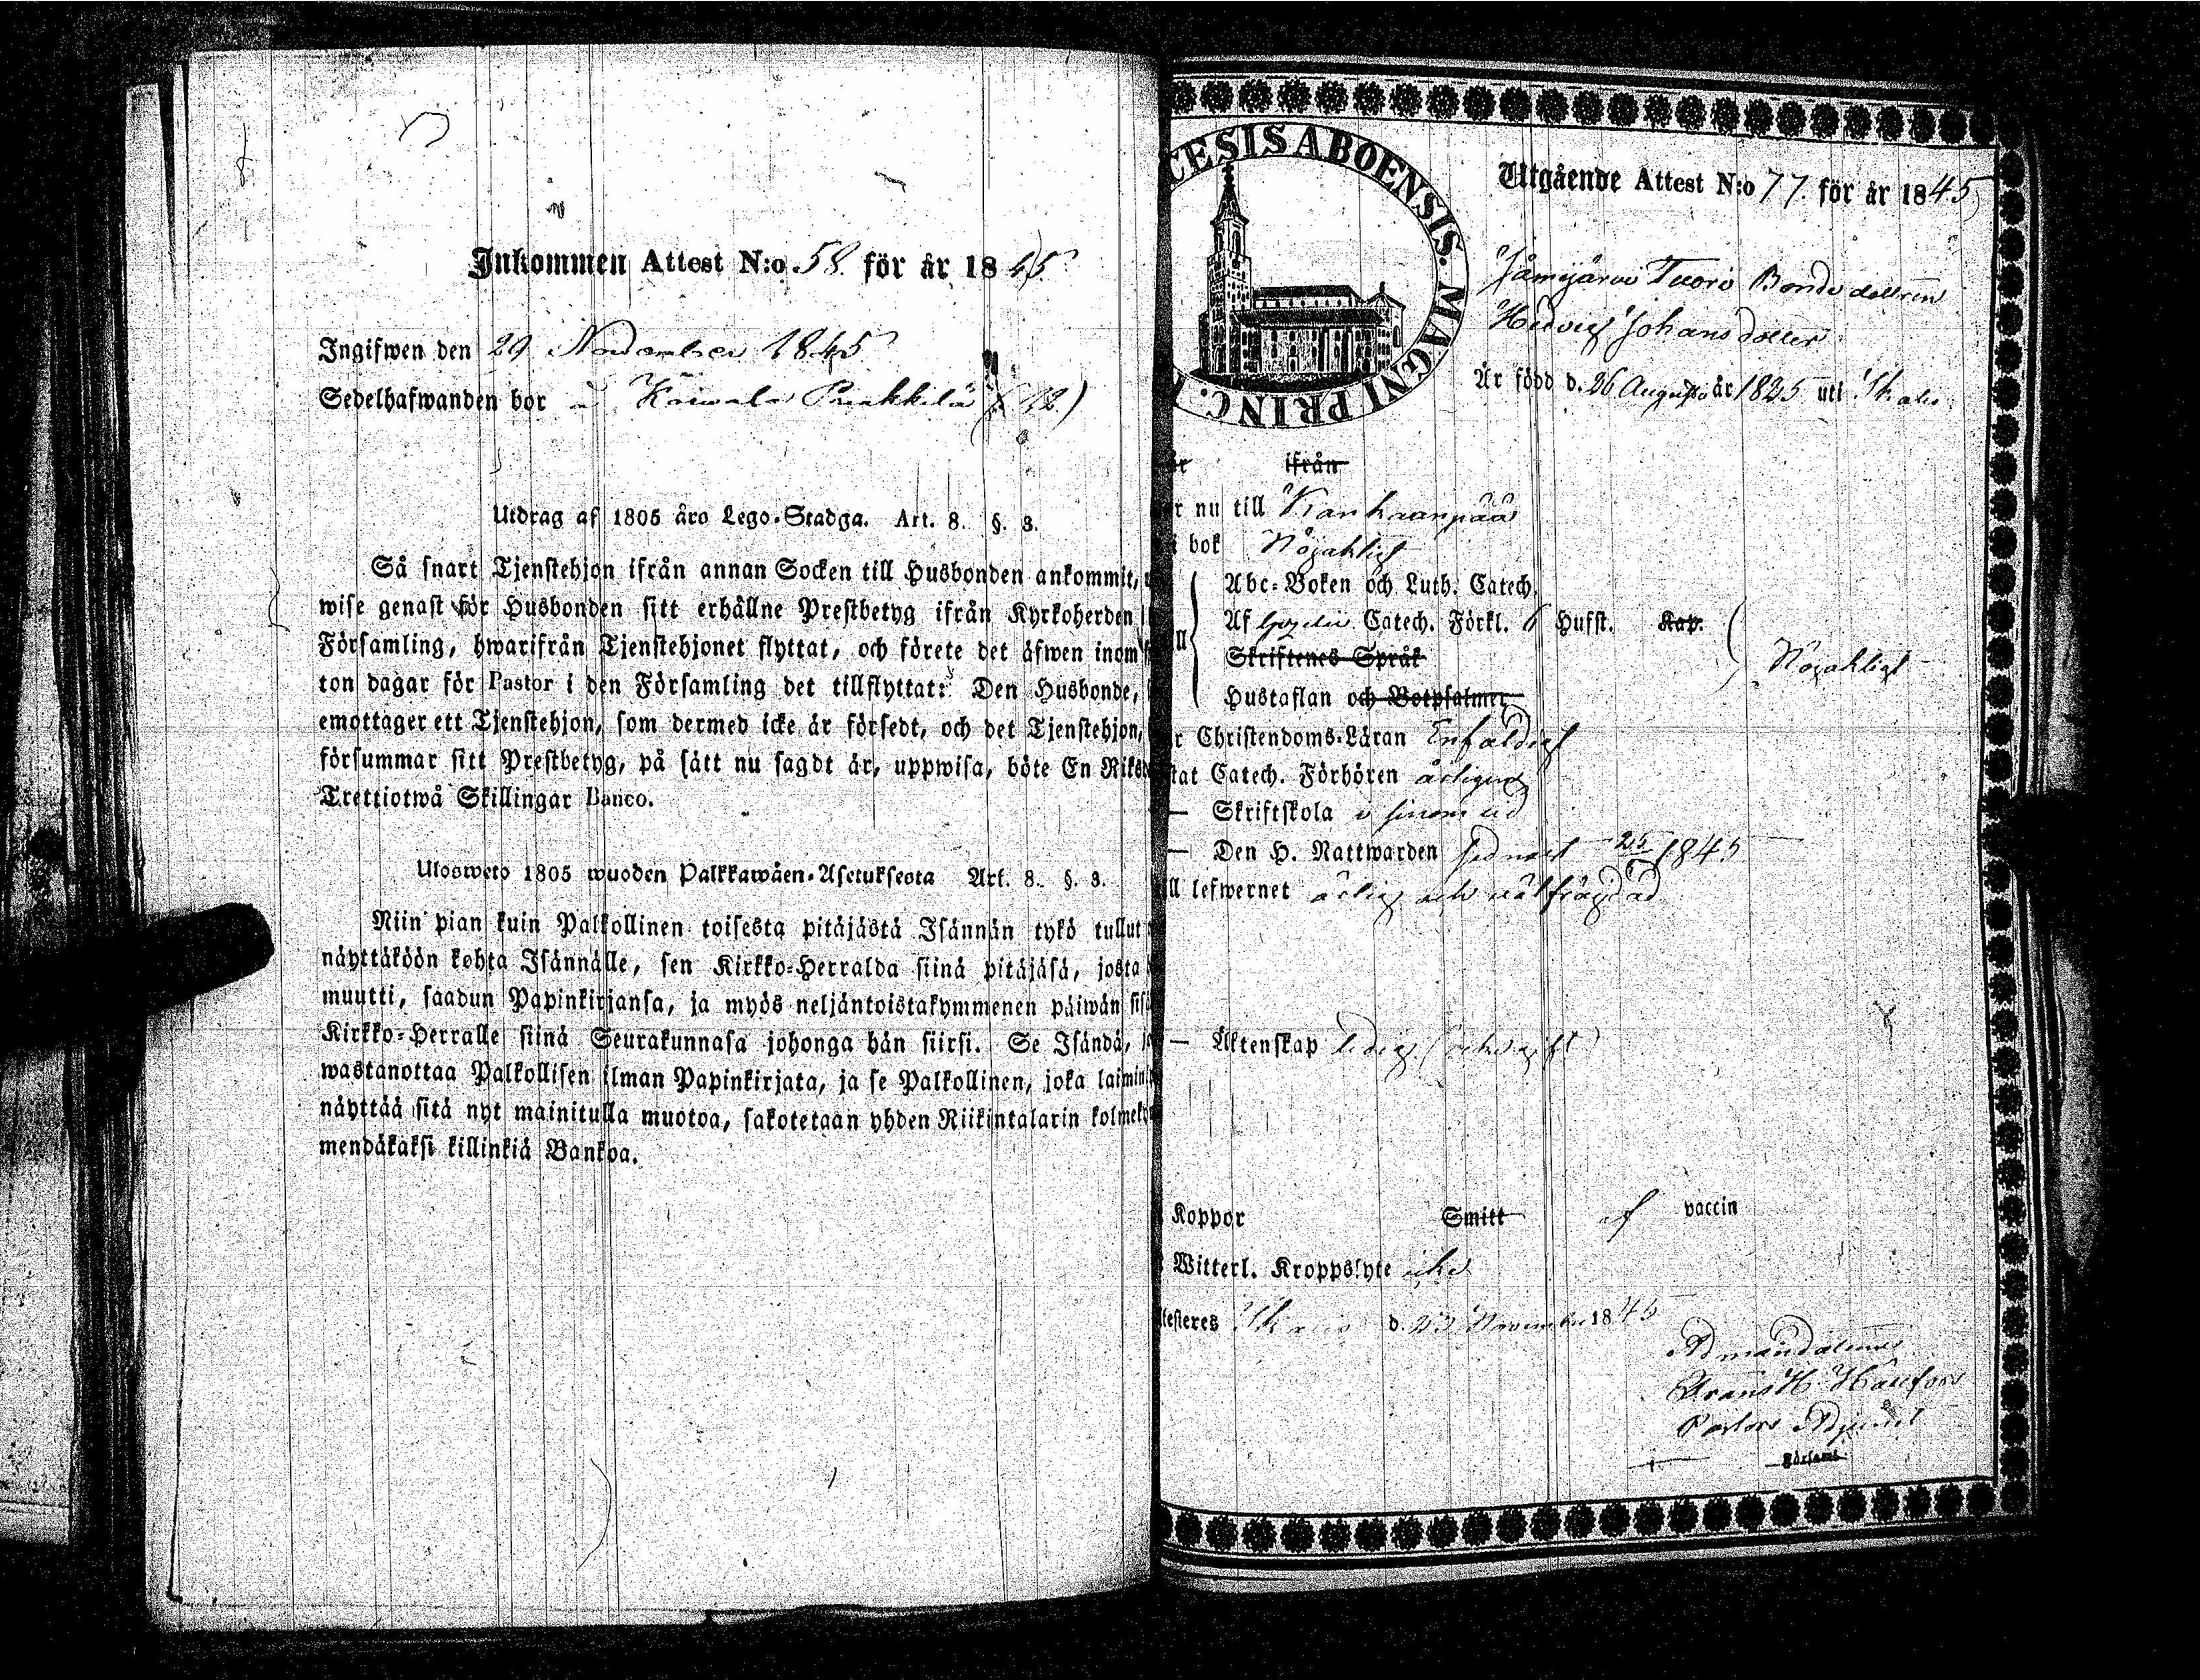 Inkommen Attest N:o 58. för år 1845
Ingifwen den 29 November 1845
Sedelhafwanden bor å Karvala Puakkila 12)
Utdrag af 1805 års Lego-Stadga. Art. 8. §. 3.
Så snart Tjenstehjon ifrån annan Socken till Husbonden ankommit,
wise genast för Husbonden sitt erhållne Prestbetyg ifrån Kyrkoherden
Församling, hwarifrån Tjenstehjonet flyttat, och förete det äfwen inom
ton dagar för Pastor i den Församling det tillflyttat: Den Husbonde,
emottager ett Tjenstehjon, som dermed icke är försedt, och det Tjenstehjon,
försummar sitt Prestbetyg, på sätt nu sagdt är, uppwisa, böte En Riks
Trettiotwå Skillingar Banco.
Ulosweto 1805 wuoden Palkkawäen-Asetuksesta Art. 8. §. 3.
Niin pian kuin Palkollinen toisesta pitäjästä Isännän tykö tullut
näyttäköön kohta Isännälle, sen Kirkko-Herralda siinä pitäjäsä, josta
muutti, saadun Papinkirjansa, ja myös neljäntoistakymmenen päiwän sis
Kirkko-Herralle siinä Seurakunnasa johonga hän siirsi. Se Isändä,
wastanottaa Palkollisen ilman Papinkirjata, ja se Palkollinen, joka laimin
näyttää sitä nyt mainitulla muotoa, sakotetaan yhden Riikintalarin kolmeky
mendäkaksi killinkiä Bankoa.
CESIS ABOENSIS. MAGNI PRINC.
Utgående Attest N:o 77. för år 1845
Jämijärvi Tuori Bonde dottren
Hedvig Johans dotter
Är född d. 26 Augusti år 1825 uti Ikalis
år ifrån
r nu till Kankaanpää
i bok Nöjaktigt
Abc-Boken och Luth. Catech.
Af Gezelii Catech. Förkl. 6 Hufst. Kap.
Skriftenes Språk
Nöjaktigt
Hustaflan och Botpsalmer
r Christendoms-Läran Enfaldigt
stat Catech. Förhören årligen
— Skriftskola i sinom tid
— Den H. Nattwarden sednast 25 1845
ll lefwernet ärlig och välfrägdad
— Äktenskap ledig (
Koppor Smitt af vaccin
Witterl. Kroppslyte icke
ttesteres Ikalis d. 23 November 1845
Ad mandatum
Frans H
Pastors Adjunct
i Församl.